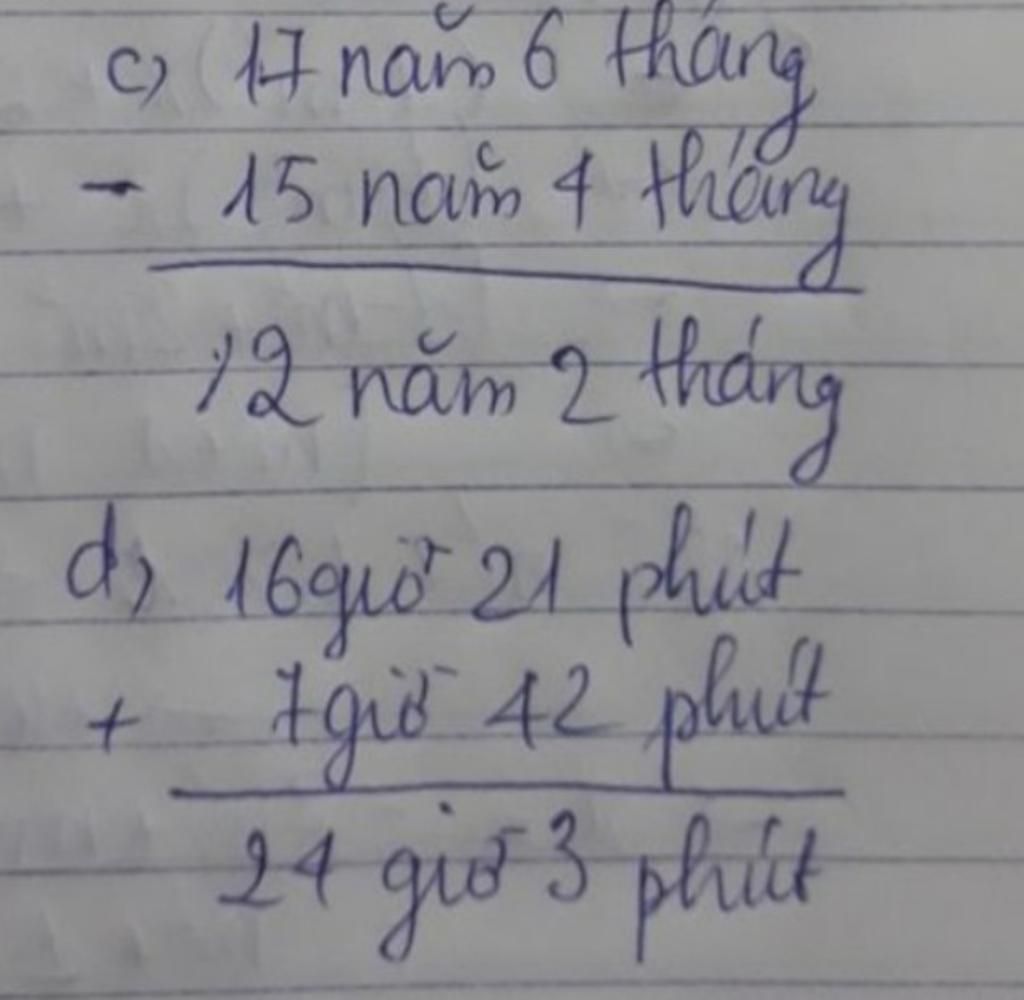 c) 17 năm 6 tháng
- 15 năm 4 tháng
12 năm 2 tháng
d) 16 giờ 21 phút
+ 7 giờ 42 phút
24 giờ 3 phút